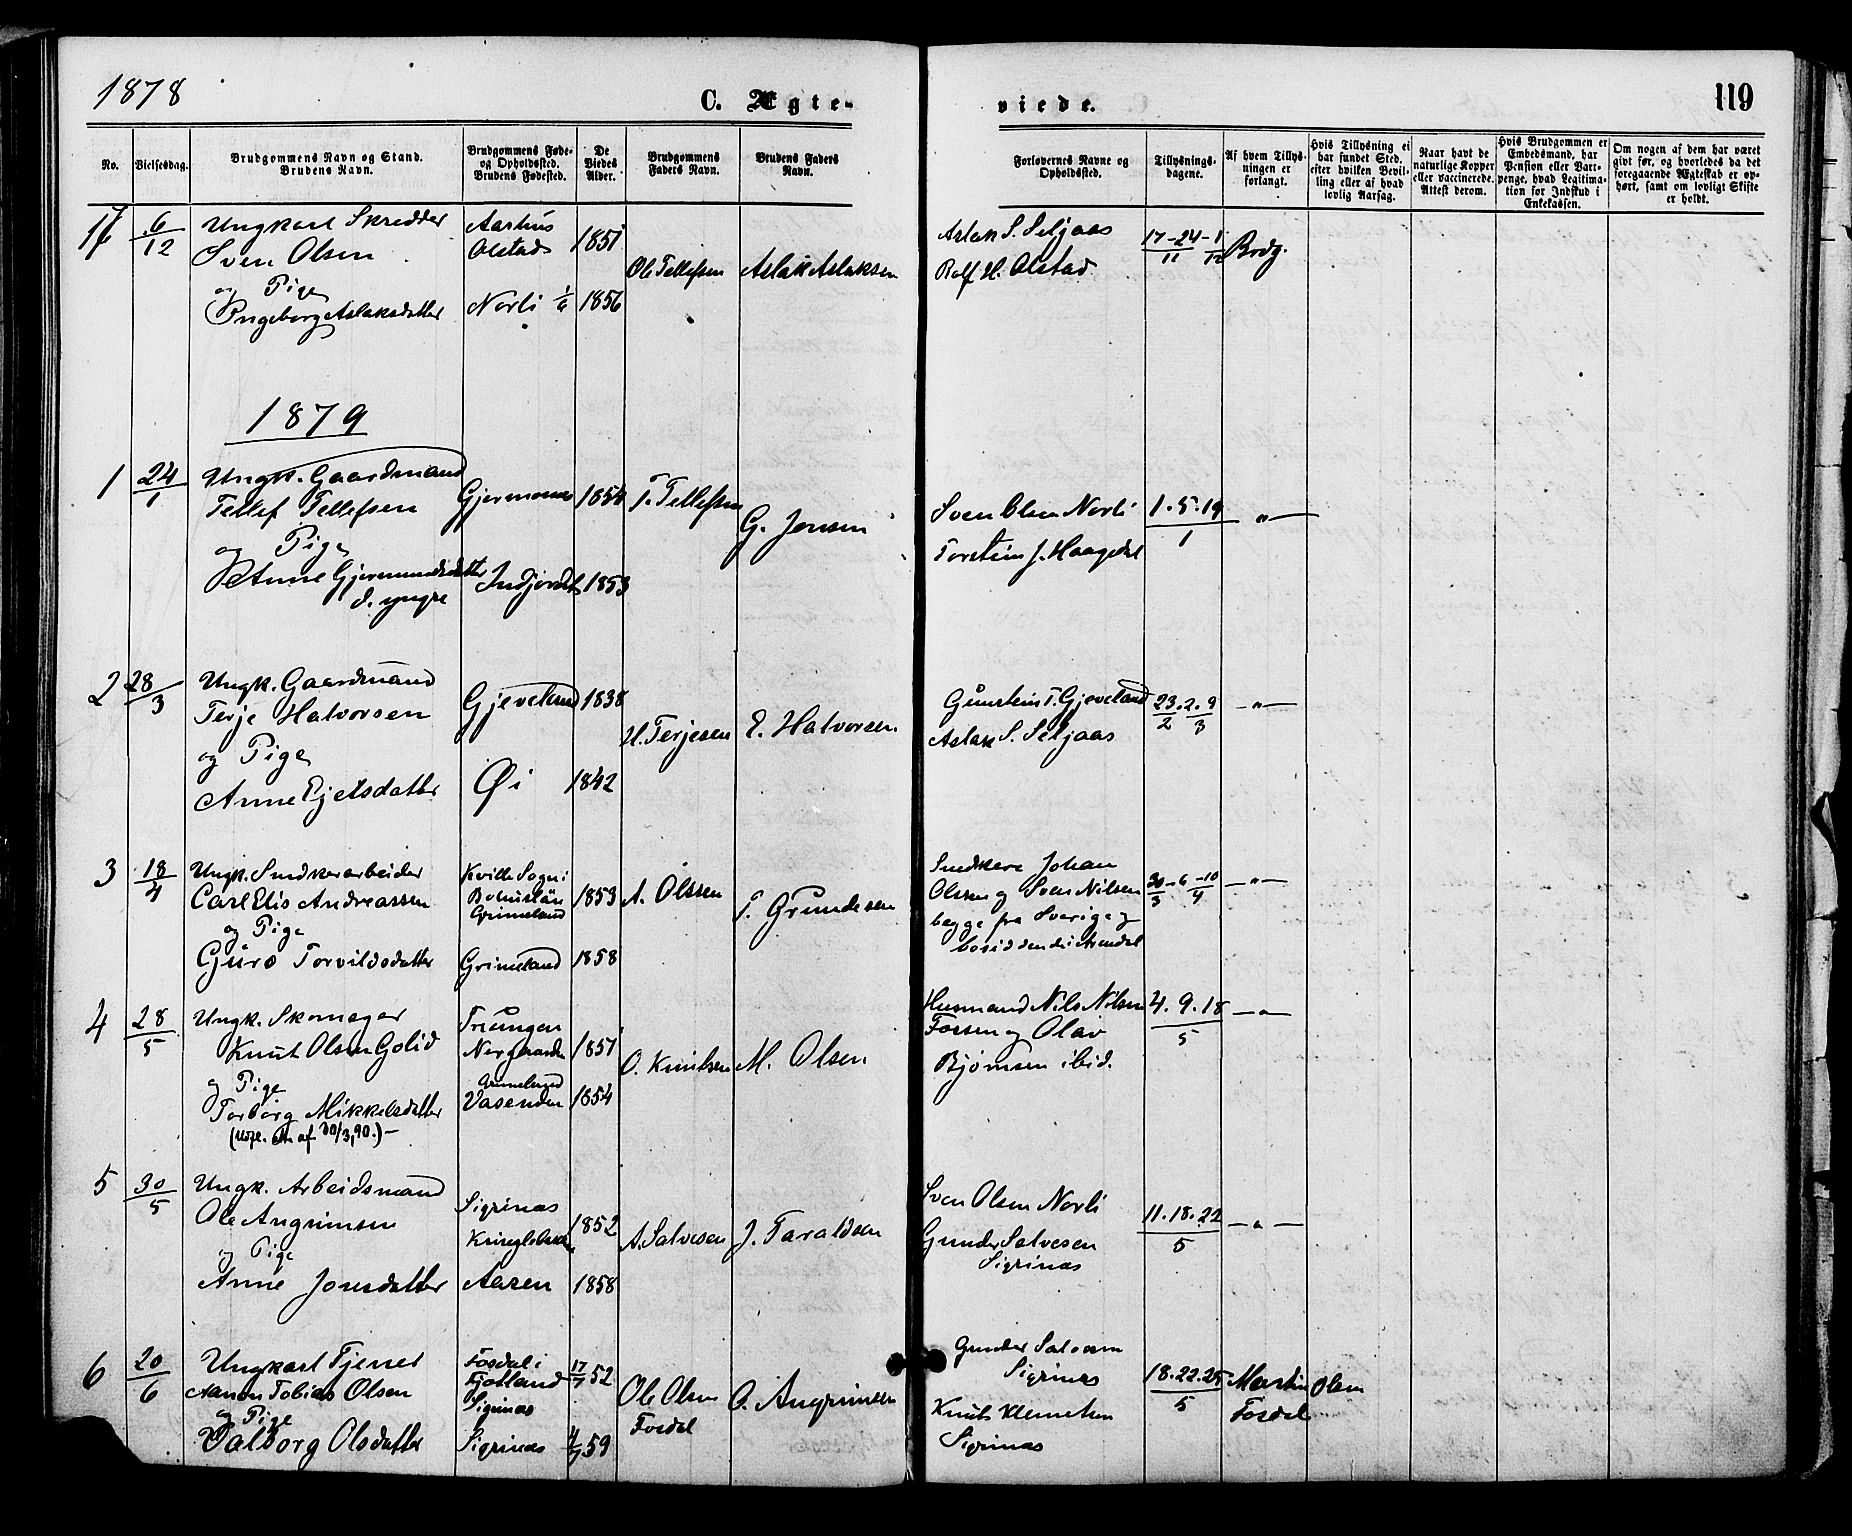 1878
C. Ægte-
viede.
119
No.
Vielsesdag.
Brudgommens Navn og Stand.
Brudens Navn.
Brudgommens Føde-
og Opholdssted.
Brudens Fødested.
De
Viedes
Alder.
Brudgommens
Faders Navn.
Brudens Faders
Navn.
Forlovernes Navne og
Opholdssted.
Tillysnings-
dagene.
Af hvem Tillys-
ningen er
forlangt.
Hvis Tillysning ei
har fundet Sted,
efter hvilken Bevil-
ling eller af hvad
lovlig Aarsag.
Naar havt de
naturlige Kopper
eller vaccinerede.
Attest derom.
Hvis Brudgommen er
Embedsmand, har
Pension eller Vart-
penge, hvad Legitima-
tion for Indskud i
Enkekassen.
Om nogen af dem har været
givt før, og hvorledes da det
foregaaende Ægteskab er op-
hørt, samt om lovligt Skifte
er holdt.
6/12
Ungkarl Skredder
Sven Olsen
og Pige
Ingeborg Aslaksdatter
Aarhus
Olstad
Norli
1851
1856
Ole Tellefsen
Aslak Aslaksen
Aslak S. Seljaas
Rolf H. Olstad
17-24-1
11 12
Brdg.
1879
1
24/1
Ungk. Gaardmand
Tellef Tellefsen
og Pige
Anne Gjermundsdatter
d. yngre
1854
1853
T. Tellefsen
G. Jensen
Sven Olsen Norli
Torstein J. Haugedal
1. 5. 19
1
— " —
2
28/3
Ungk. Gaardmand
Terje Halvorsen
og Pige
Anne Ejelsdatter
Gjeveland
Øi
1838
1842
H. Terjesen
E. Halvorsen
Gunstein T. Gjeveland
Aslak S. Seljaas
23. 2. 9
2 3
— " —
3
18/4
Ungk. Snedkerarbeider
Carl Elis Andreassen
og Pige
Guro Torvildsdatter
Kville Sogn i
Bohuslän
Grimeland
Grimeland
1853
1858
A. Olssen
T. Grundesen
Snedkere Johan
Olssen og Sven Nilsen
begge fra Sverige og
bosiddende i Arendal
30-6-10
3 4
— " —
4
28/5
Ungk. Skomager
Knut Olsen Golid
og Pige
Torborg Mikkelsdatter
(Udf. Att. af 30/3, 90.) —
Triungen
Nergaarden
Grimelund
Vasenden
1851
1854
O. Knutsen
M. Olsen
Husmand Nils Nilsen
Fossen og Olav
Bjørnsen ibid.
4. 9. 18
5
— " —
5
30/5
Ungk. Arbeidsmand
Ole Angrimsen
og Pige
Anne Jonsdatter
Sigrinas
Aasen
1852
1858
A. Salvesen
J. Taraldsen
Sven Olsen Norli
Gunder Salvesen
Sigrinas
11. 18. 22
5
— " —
6
20/6
Ungkarl Tjener
Aanon Tobias Olsen
og Pige
Valborg Olsdatter
Fosdal i
Fjotland
Sigrinas
Sigrinas
17/7 52
4/7 59
Ole Olsen
Fosdal
O. Angrimsen
Gunder Salvesen
Sigrinas
Knut Klemetsen
Sigrinas
18. 22. 25
5
Martin Olsen
Fosdal